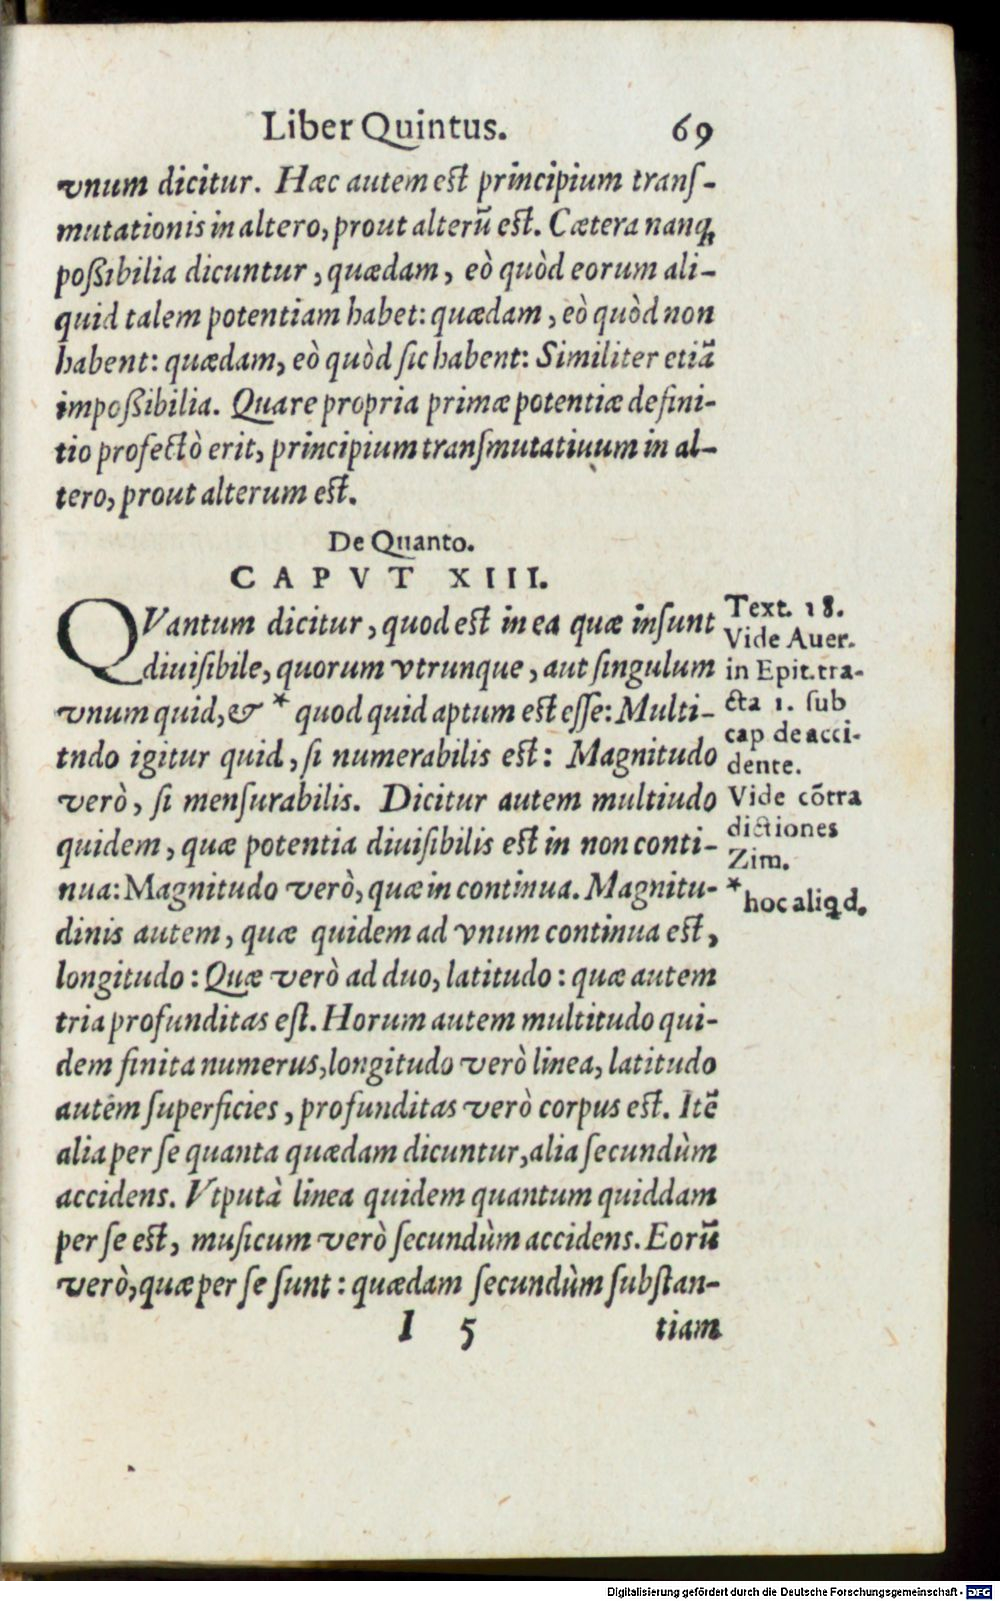 Liber Quintus. 69
vnum dicitur. Hæc autem est principium tranſ-
mutationis in altero, prout alterũ est. Cætera nanq;
poßibilia dicuntur, quædam, eò quòd eorum ali-
quid talem potentiam habet: quædam, eò quòd non
habent: quædam, eò quòd ſic habent: Similiter etiã
impoßibilia. Quare propria primæ potentiæ defini-
tio profectò erit, principium tranſmutatiuum in al-
tero, prout alterum est.
De Quanto.
CAPVT XIII.
QVantum dicitur, quod est in ea quæ inſunt
diuiſibile, quorum vtrunque, aut ſingulum
vnum quid, & * quod quid aptum est eſſe: Multi-
tndo igitur quid, ſi numerabilis est: Magnitudo
verò, ſi menſurabilis. Dicitur autem multiudo
quidem, quæ potentia diuiſibilis est in non conti-
nua: Magnitudo verò, quæ in continua. Magnitu-
dinis autem, quæ quidem ad vnum continua est,
longitudo: Quæ verò ad duo, latitudo: quæ autem
tria profunditas eſt. Horum autem multitudo qui-
dem finita numerus, longitudo verò linea, latitudo
autem ſuperficies, profunditas verò corpus est. Itẽ
alia per ſe quanta quædam dicuntur, alia ſecundùm
accidens. Vtputà linea quidem quantum quiddam
per ſe est, muſicum verò ſecundùm accidens. Eorũ
verò, quæ per ſe ſunt: quædam ſecundùm ſubſtan-
I 5 tiam
Text. 18.
Vide Auer.
in Epit. tra-
cta 1. ſub
cap de acci-
dente.
Vide cõtra
dictiones
Zim.
*
hoc aliqd.
Digitalisierung gefördert durch die Deutsche Forschungsgemeinschaft - DFG